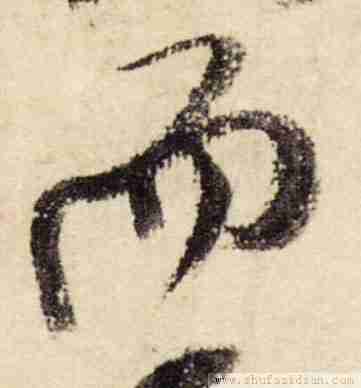 而
www.shufazidian.com